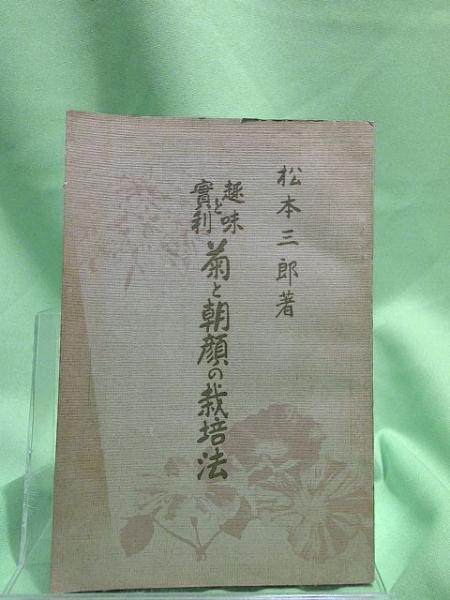 松本三郎著
趣味と實利
菊と朝顔の栽培法